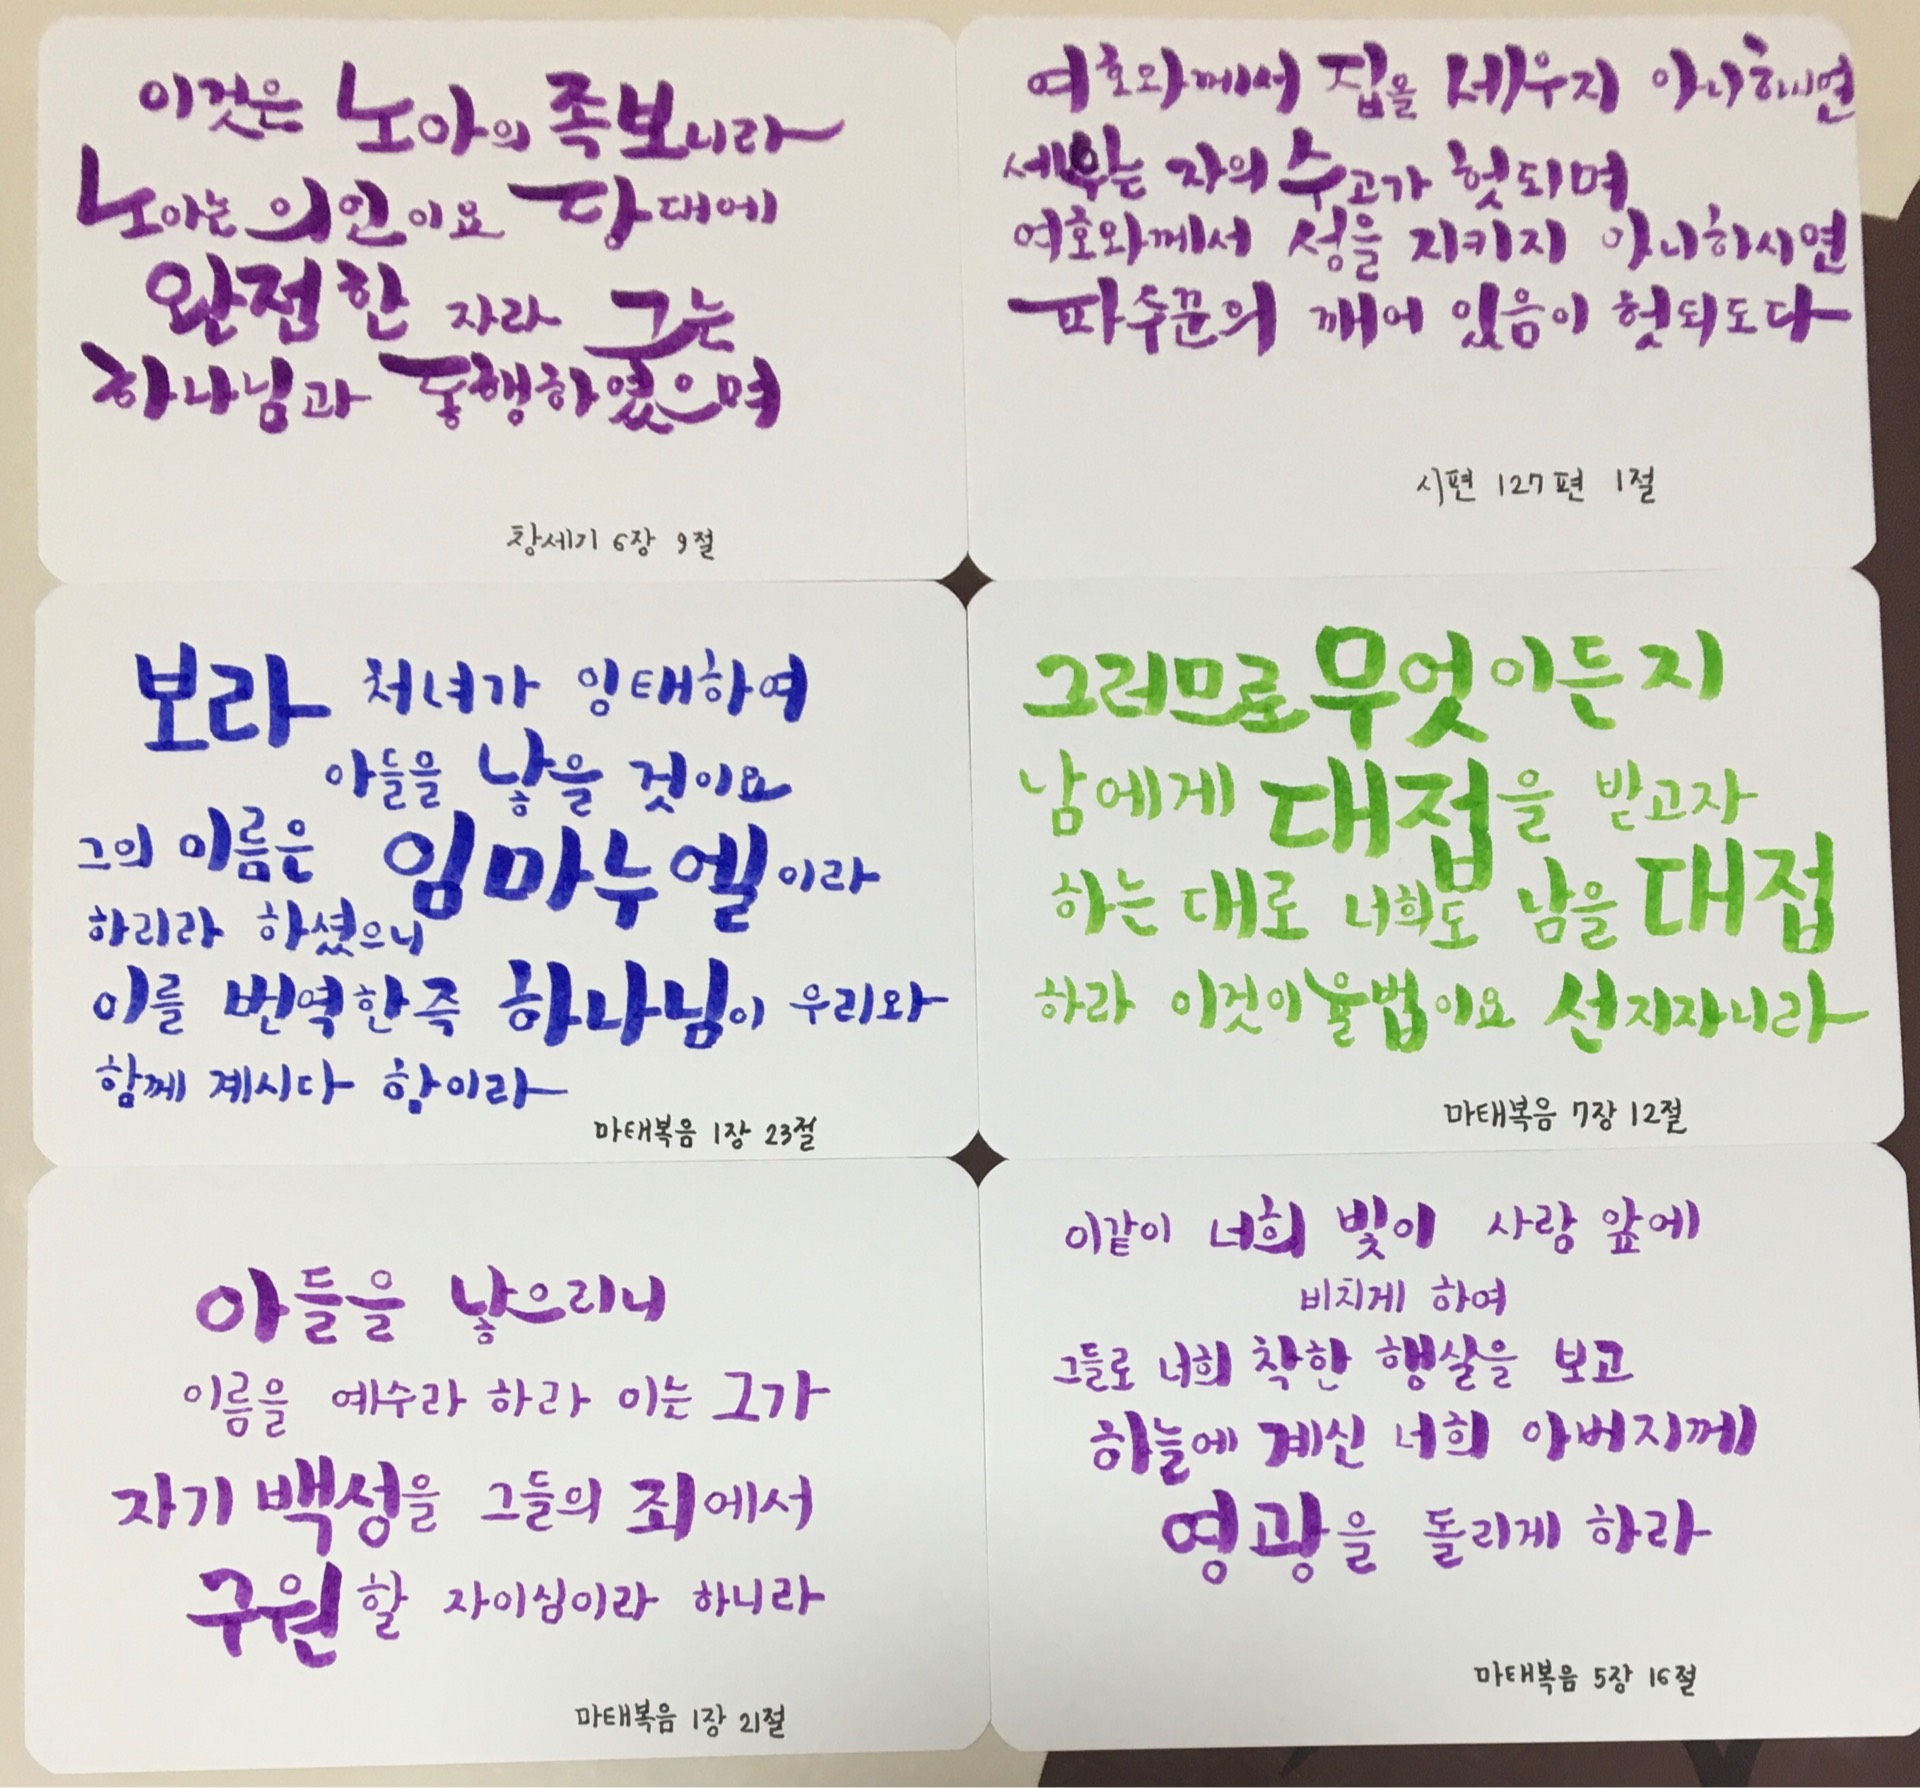 이것은 노아의 족보니라
노아는 의인이요 당대에
완전한 자라 그는
하나님과 동행하였으며
창세기 6장 9절
여호와께서 집을 세우지 아니하시면
세우는 자의 수고가 헛되며
여호와께서 성을 지키지 아니하시면
파수꾼의 깨어 있음이 헛되도다
시편 127편 1절
보라 처녀가 잉태하여
아들을 낳을 것이요
그의 이름은 임마누엘이라
하리라 하셨으니
이를 번역한즉 하나님이 우리와
함께 계시다 함이라
마태복음 1장 23절
그러므로 무엇이든지
남에게 대접을 받고자
하는 대로 너희도 남을 대접
하라 이것이 율법이요 선지자니라
마태복음 7장 12절
아들을 낳으리니
이름을 예수라 하라 이는 그가
자기 백성을 그들의 죄에서
구원할 자이심이라 하니라
마태복음 1장 21절
이같이 너희 빛이 사랑 앞에
비치게 하여
그들로 너희 착한 행실을 보고
하늘에 계신 너희 아버지께
영광을 돌리게 하라
마태복음 5장 16절